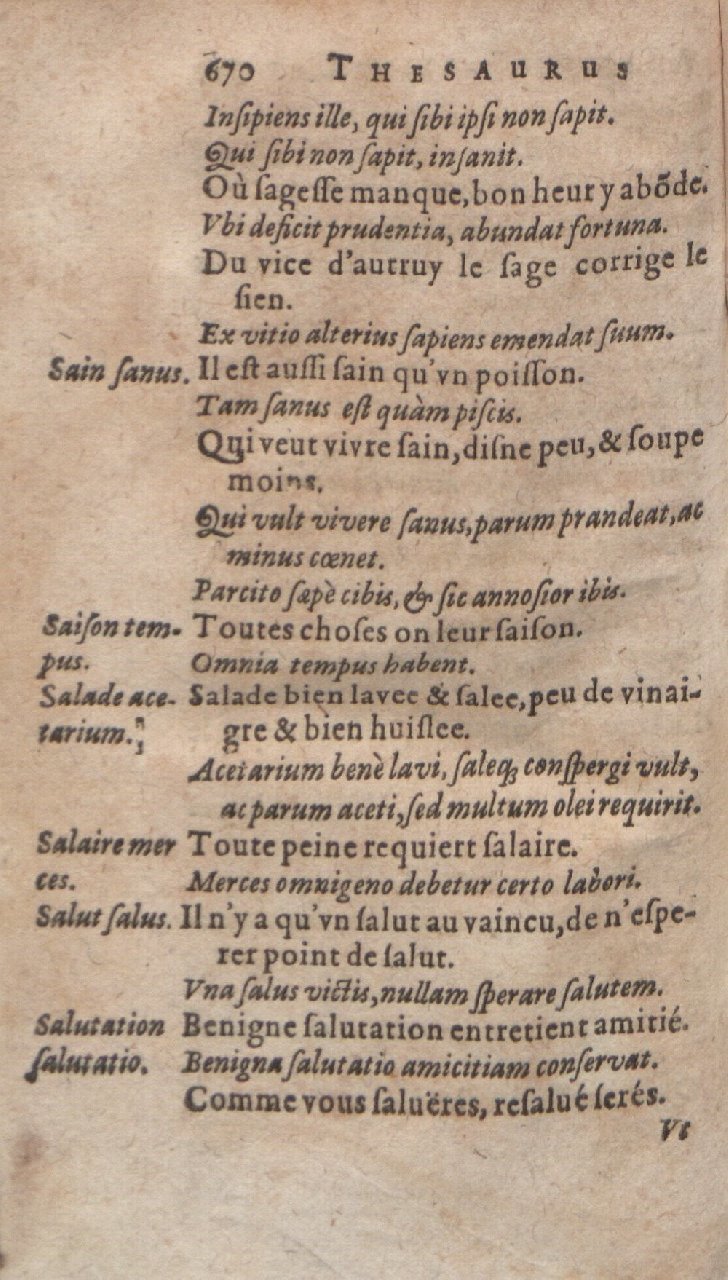 670 THESAURUS
Inſipiens ille, qui ſibi ipſi non ſapit.
Qui ſibi non ſapit, inſanit.
Où ſageſſe manque, bon heur y abõde.
Vbi deficit prudentia, abundat fortuna.
Du vice d'autruy le ſage corrige le
ſien.
Ex vitio alterius ſapiens emendat ſuum.
Sain ſanus. Il eſt auſſi ſain qu'vn poiſſon.
Tam ſanus eſt quàm piſcis.
Qui veut vivre ſain, diſne peu, & ſoupe
moins.
Qui vult vivere ſanus, parum prandeat, ac
minus cœnet.
Parcito ſæpè cibis, & ſic annoſior ibis.
Saiſon tem- Toutes choſes on leur ſaiſon.
pus. Omnia tempus habent.
Salade ace- Salade bien lavee & ſalee, peu de vinai-
tarium. gre & bien huiſlee.
Acetarium benè lavi, ſaleq; conſpergi vult,
ac parum aceti, ſed multum olei requirit.
Salaire mer Toute peine requiert ſalaire.
ces. Merces omnigeno debetur certo labori.
Salut ſalus. Il n'y a qu'vn ſalut au vaincu, de n'eſpe-
rer point de ſalut.
Vna ſalus victis, nullam ſperare ſalutem.
Salutation Benigne ſalutation entretient amitié.
ſalutatio. Benigna ſalutatio amicitiam conſervat.
Comme vous ſaluëres, reſalué ſerés.
Vt